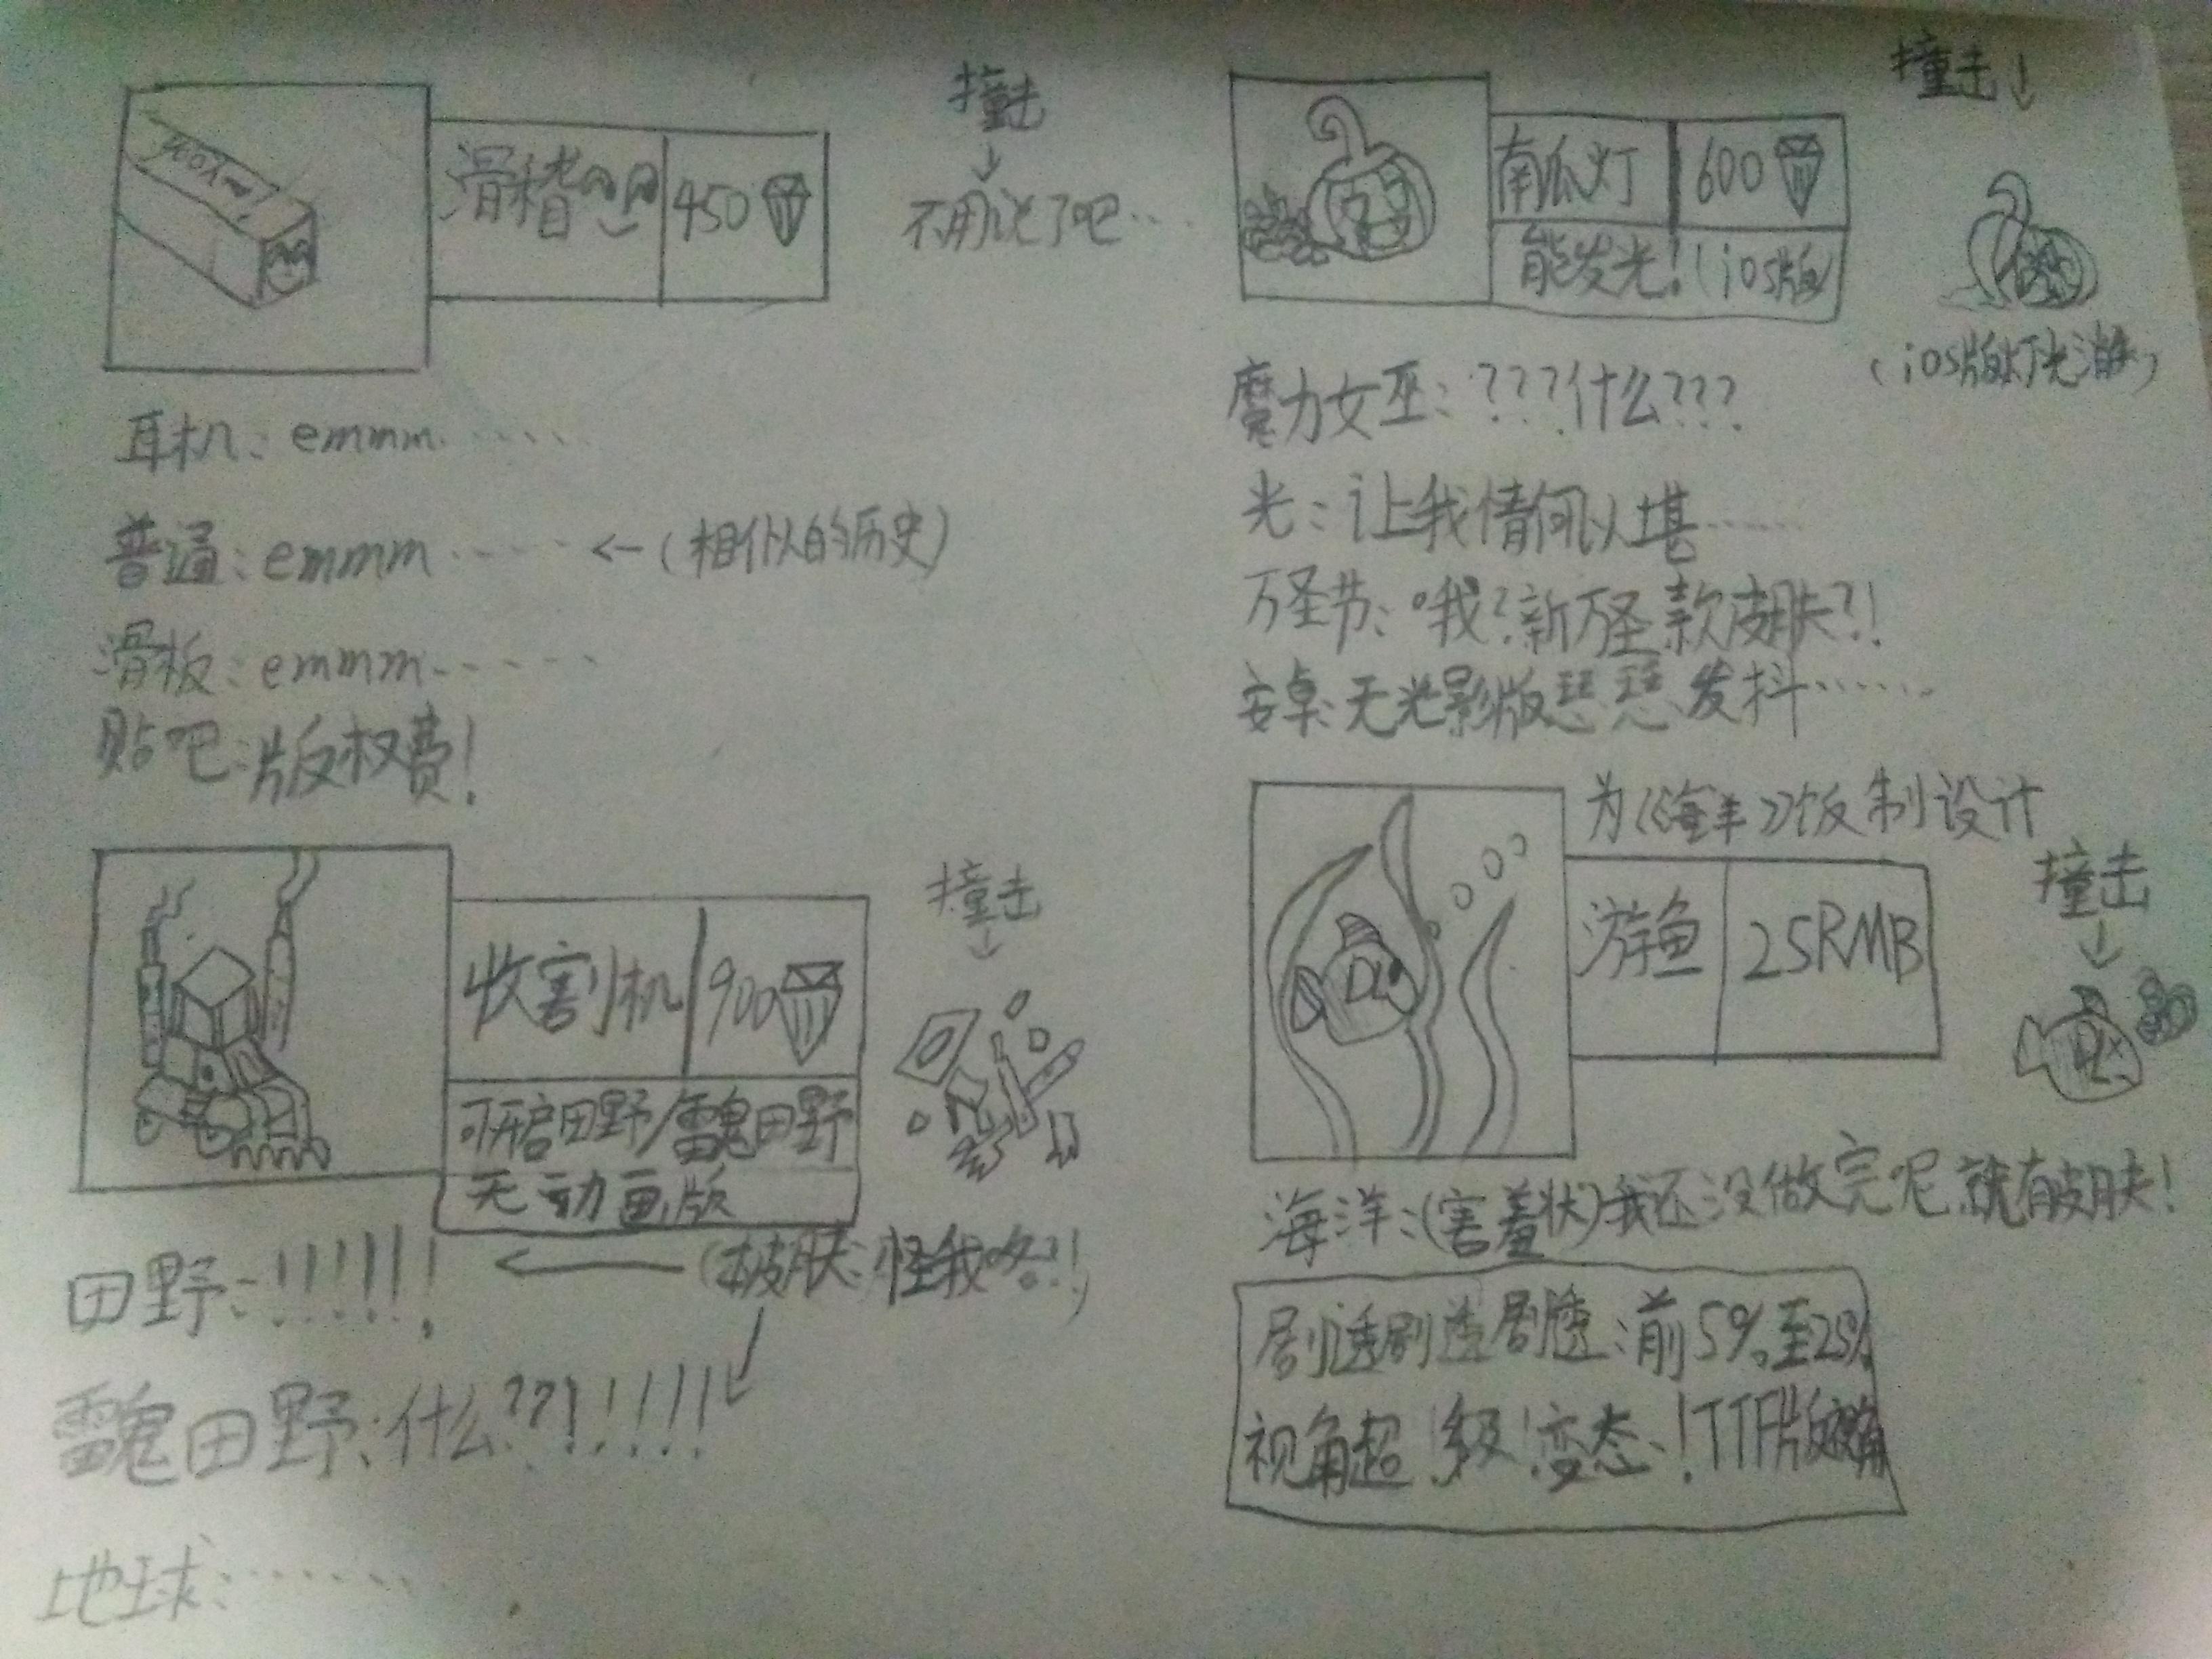 滑稽
450
撞击
↓
不用说了吧……
耳机：emmm……
普通：emmm……←（相似的历史）
滑板：emmm……
贴吧：版权费！
南瓜灯
600
能发光！（ios版
撞击↓
（ios版灯光消失）
魔力女巫：？？？什么？？？
光：让我情何以堪……
万圣节：哦？新万圣款皮肤？！
安卓无光影版瑟瑟发抖……
收割机
900
可开启田野/
田野
无动画版
撞击
↓
田野：！！！！！！
←（本皮肤：怪我咯？！）
田野：什么？？！！！！！
地球：……
为《海洋》饭制设计
游鱼
25RMB
撞击
↓
海洋：（害羞状）我还没做完呢就有皮肤！
剧透剧透剧透：前5%至25%
视角超！级！变态！TTF版